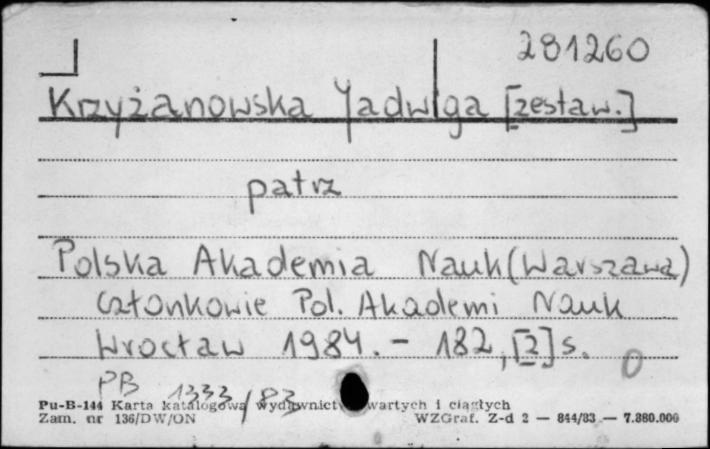 281260
Krzyżanowska Jadwiga [zestaw.]
patrz
Polska Akademia Nauk (Warszawa)
Członkowie Pol. Akademi Nauk
Wrocław 1984. - 182, [2] s. 0
PB 1333/83
Pu-B-144 Karta katalogowa wydawnictw zwartych i ciągłych
Zam. nr 136/DW/ON WZGraf. Z-d 2 — 844/83 — 7.880.000